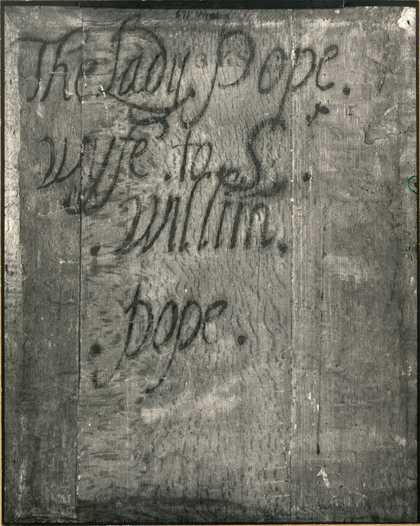 The Lady Pope.
wyfe to S.
. willim.
. pope.